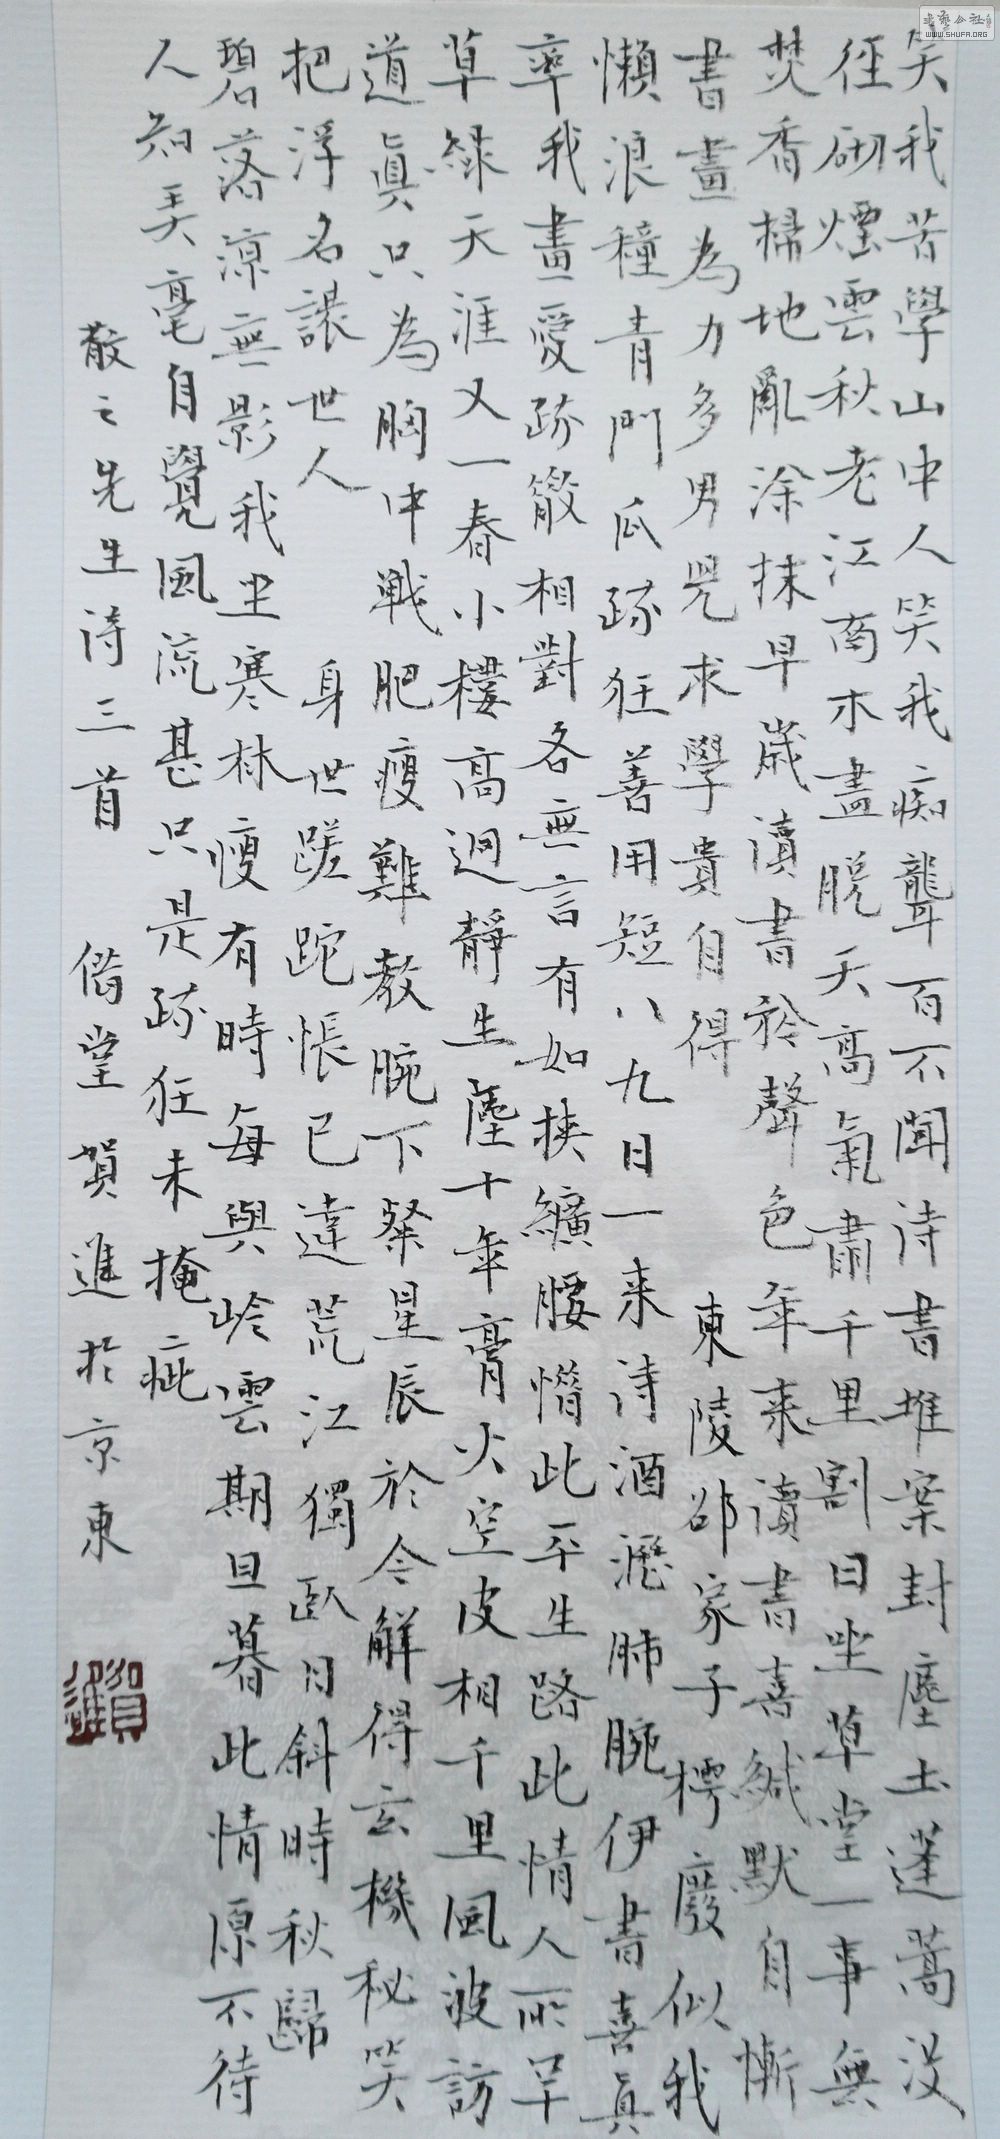 笑我苦學山中人笑我痴聾百不聞詩書堆案封塵土蓬蒿没
徑砌煙雲秋老江南木盡脱天高氣肅千里割日坐草堂一事無
焚香掃地亂塗抹早歲讀書於聲色年来讀書喜緘默自慚
書畫為力多男兒求學貴自得 東陵邵家子樗廢似我
懶浪種青門瓜疏狂善用短八九日一来詩酒瀝肺腕伊書喜真
率我畫愛疏散相對各無言有如挟纊腰憯此平生路此情人所罕
草緑天涯又一春小樓高迥静生塵十年膏火空皮相千里風波訪
道真只為胸中戰肥瘦難教腕下粲星辰於今解得玄機秘笑
把浮名讓世人 身世蹉跎悵已違荒江獨卧日斜時秋歸
碧落凉無影我坐寒林瘦有時每與岭雲期旦暮此情原不待
人知美毫自覺風流甚只是疏狂未掩疵
散之先生詩三首 偕堂 賀進於京東
賀進
書藝公社
WWW.SHUFA.ORG